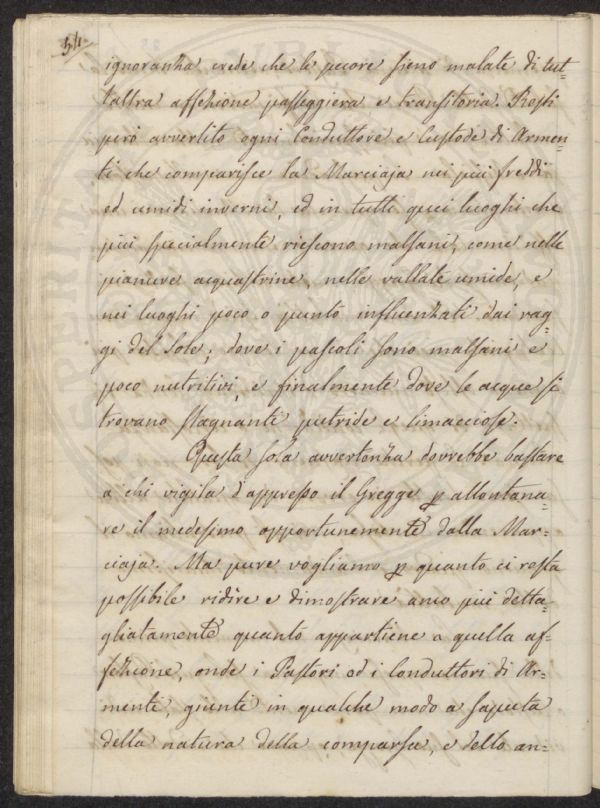 54.
ignoranza crede che le pecore sieno malate di tut-
t'altra affezione passeggiera e transitoria. Resti
però avvertito ogni Conduttore e Custode di Armen-
ti che comparisce la Marciaja nei più freddi
ed umidi inverni, ed in tutti quei luoghi che
più specialmente riescono malsani, come nelle
pianure acquastrine, nelle vallate umide, e
nei luoghi poco o punto influenzati dai rag-
gi del Sole; dove i pascoli sono malsani e
poco nutritivi, e finalmente dove le acque si
trovano stagnanti putride e limacciose.
Questa sola avvertenza dovrebbe bastare
a chi vigila d'appresso il Gregge p allontana-
re il medesimo opportunemente dalla Mar-
ciaja. Ma pure vogliamo p quanto ci resta
possibile ridire e dimostrare anco più detta-
gliatamente quanto appartiene a quella af-
fezione, onde i Pastori ed i Conduttori di Ar-
menti, giunti in qualche modo a saputa
della natura della comparsa, e dello an-